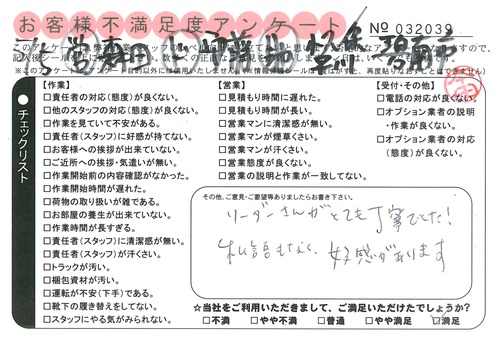 お客様不満足度アンケート
№ 032039
【作業】
□責任者の対応(態度)が良くない。
□他のスタッフの対応(態度)が良くない。
□作業を見ていて不安がある。
□責任者(スタッフ)に好感が持てない。
□お客様への挨拶が出来ていない。
□ご近所への挨拶・気遣いが無い。
□作業開始前の内容確認がなかった。
□作業開始時間が遅れた。
□荷物の取り扱いが雑である。
□お部屋の養生が出来ていない。
□作業時間が長すぎる。
□責任者(スタッフ)に清潔感が無い。
□責任者(スタッフ)が汗くさい。
□トラックが汚い。
□梱包資材が汚い。
□運転が不安(下手)である。
□靴下の履き替えをしてない。
□スタッフにやる気がみられない。
【営業】
□見積もり時間に遅れた。
□見積もり時間が長い。
□営業マンに清潔感が無い。
□営業マンが煙草くさい。
□営業マンが汗くさい。
□営業態度が良くない。
□営業の説明と作業が一致してない。
【受付・その他】
□電話の対応が良くない。
□オプション業者の説明・作業が良くない。
□オプション業者の対応(態度)が良くない。
チェックリスト
その他、ご意見・ご要望等ありましたらお書き下さい。
リーダーさんがとても丁寧でした!
私語もなく、好感があります
☆当社をご利用いただきまして、ご満足いただけたでしょうか?
□不満 □やや不満 □普通 □やや満足 ☑満足